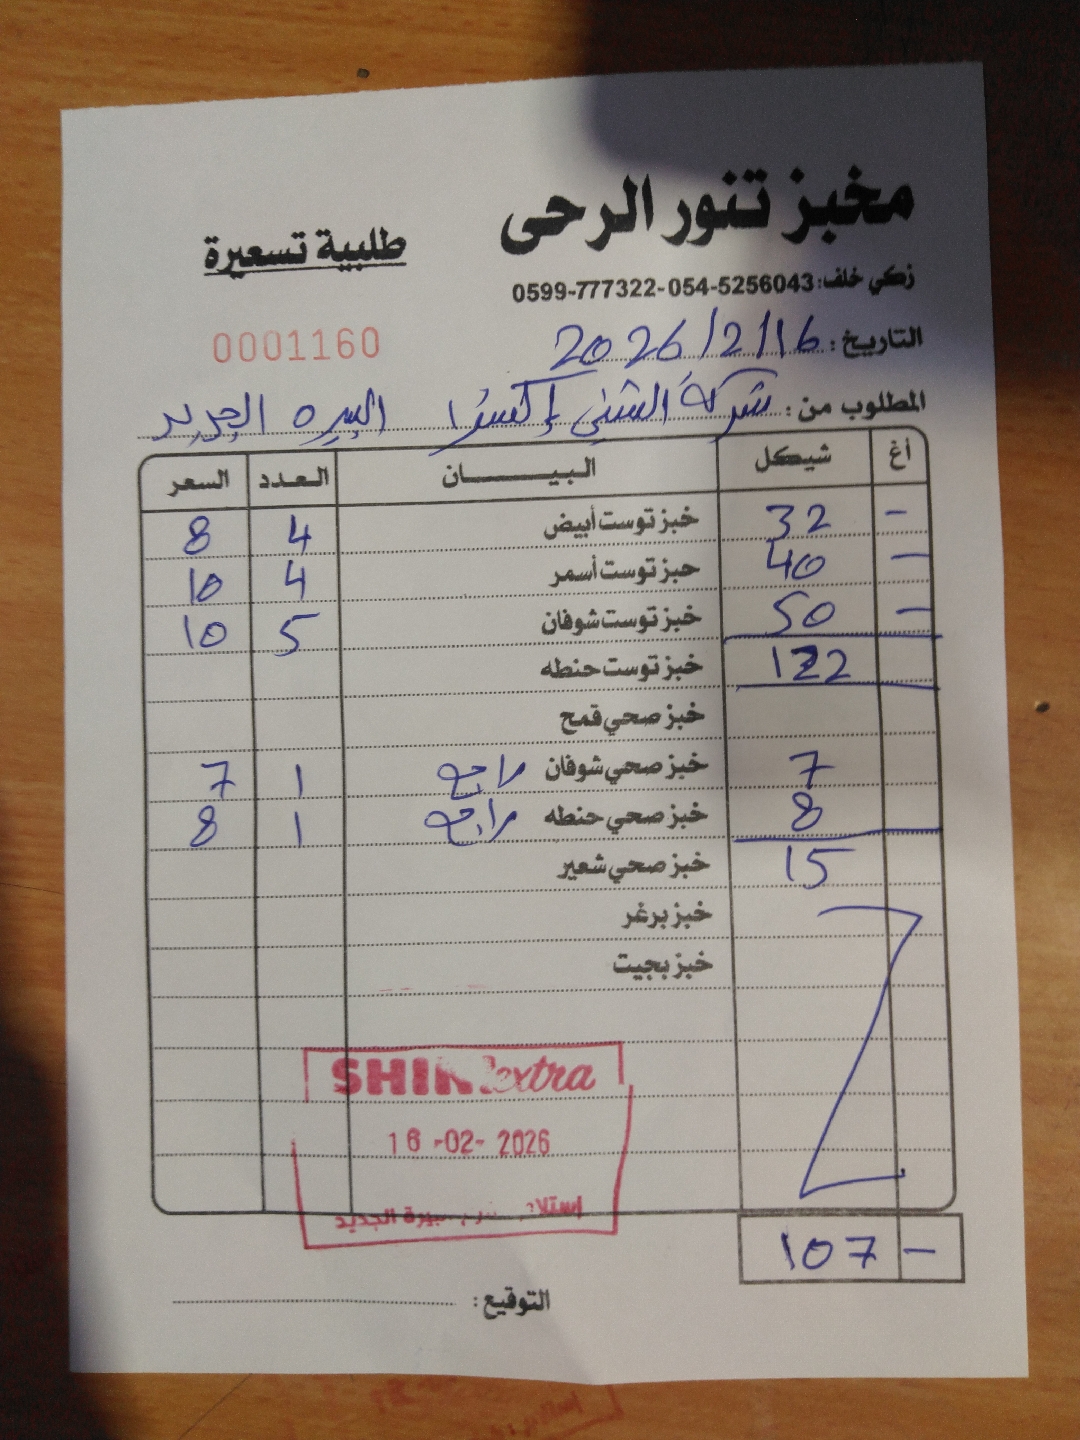 مخبز تنور الرحى
طلبية تسعيرة
زكي خلف: 054-5256043 - 0599-777322
0001160
التاريخ: 2026/2/16
المطلوب من: شركة الشني إكسترا البيره الجديد
أغ شيكل البيــــــان العدد السعر
- 32 خبز توست أبيض 4 8
- 40 خبز توست أسمر 4 10
- 50 خبز توست شوفان 5 10
122 خبز توست حنطه
خبز صحي قمح
7 خبز صحي شوفان راجع 1 7
8 خبز صحي حنطه راجع 1 8
15 خبز صحي شعير
خبز برغر
خبز بجيت
extra
16-02-2026
البيرة الجديد
107 -
التوقيع: